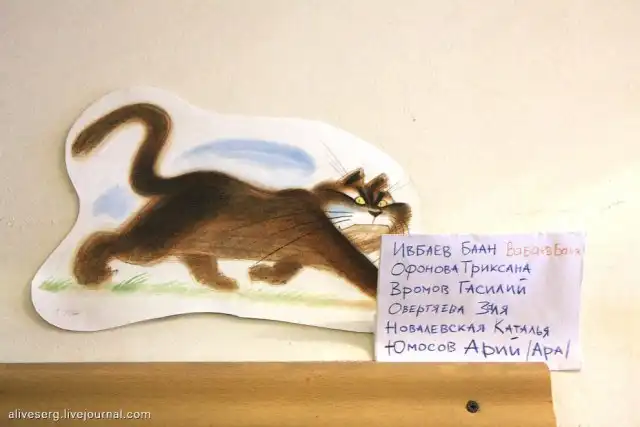 Ивбаев Блан ВаБаев Баля
Офонова Триксана
Вромов Гасилий
Овертяева Зля
Новалевская Каталья
Юмосов Арий /Ара/
aliveserg.livejournal.com